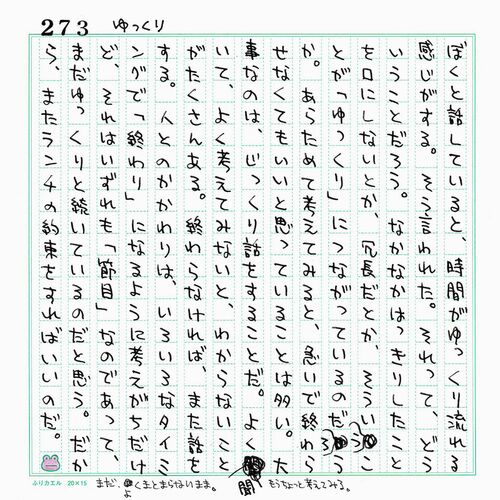 273 ゆっくり
ぼくと話していると、時間がゆっくり流れる
感じがする。そう言われた。それって、どう
いうことだろう。なかなかはっきりしたこと
を口にしないとか、冗長だとか、そういうこ
とが「ゆっくり」につながっているのだろう
か。あらためて考えてみると、急いで終わら
せなくてもいいと思っていることは多い。大
事なのは、じっくり話をすることだ。よく聞
いて、よく考えてみないと、わからないこと
がたくさんある。終わらなければ、また話を
する。人とのかかわりは、いろいろなタイミ
ングで「終わり」になるように考えがちだけ
ど、それはいずれも「節目」なのであって、
まだゆっくりと続いているのだと思う。だか
ら、またランチの約束をすればいいのだ。
ふりカエル 20×15
まだ、よくまとまらないまま。
もうちょっと考えてみる。